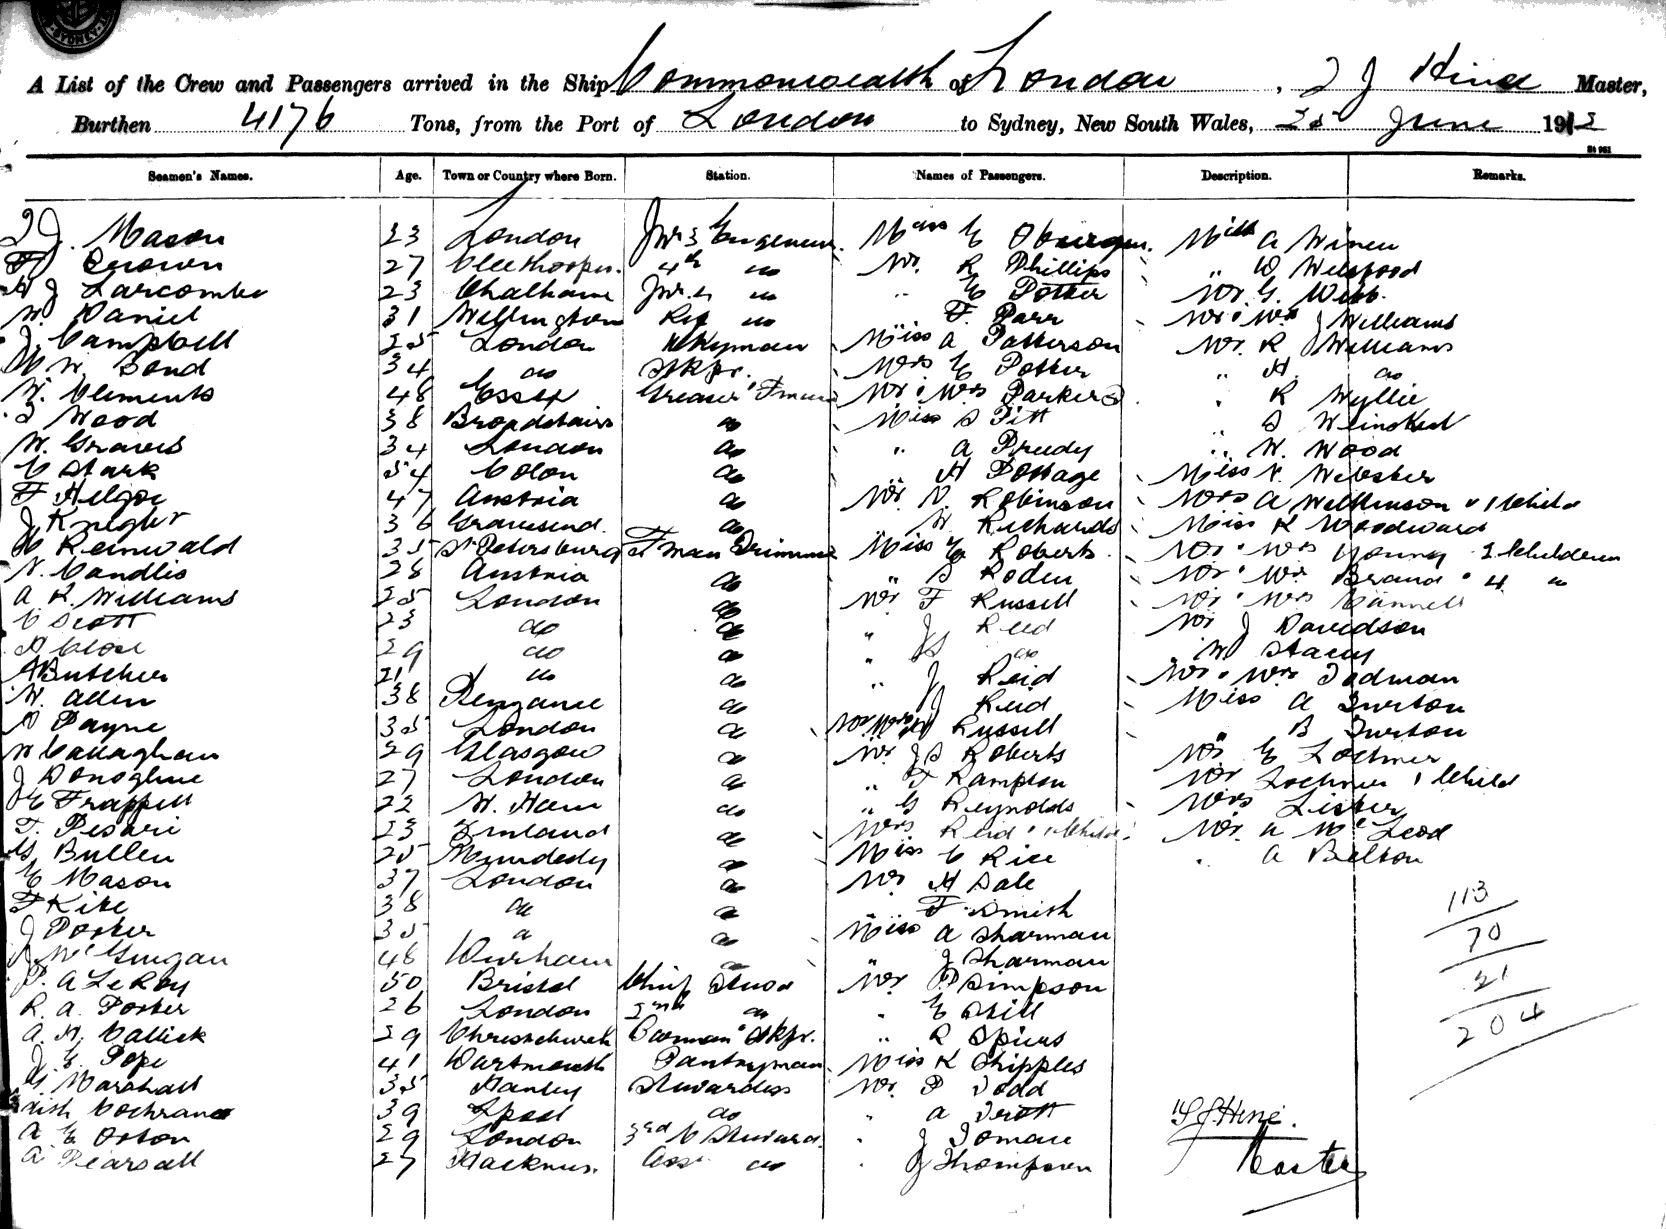 SYDNEY
A List of the Crew and Passengers arrived in the Ship Commonwealth of London, J Hine Master,
Burthen 4176 Tons, from the Port of London to Sydney, New South Wales, 25 June 1912
Seamen's Names. Age. Town or Country where Born. Station. Names of Passengers. Description. Remarks.
J. Mason 23 London Miss E Miss A
Brown 27 Cleethorpes. 4th do Mr. R Phillips " W Welsford
J Larcombe 23 Chatham do " E Potter Mr. G. Webb.
W Daniel 31 Wellington do F. Parr Mr & Mrs J Williams
J Campbell 25 London Miss A Patterson Mr. R Williams
W. Bond 34 do Stkpr. Mrs E Potter " H. do
W. Clements 48 Essex Greaser & Mr & Mrs Parker " R Wyllie
Wood 38 Broadstairs do Miss S Pitt " S
W. Graves 34 London do " A Preedy " W. Wood
C Stark 54 Colon do " H Postage Miss N. Webster
F 47 Austria do Mr. V. Robinson Mrs A Wilkinson & 1 Child
J Knight 36 Gravesend. do W Richards Miss K Woodward
Reinwald 35 St Petersburg Fman & Trimmer Miss E Roberts. Mr & Mrs Young 2 Children
N. Candlis 28 Austria do " S Roden Mr & Mrs Brand & 4 "
A R. Williams 25 London do Mr F Russell Mr & Mrs Cannell
C Scott 23 do do " J Reid Mr J Davidson
Close 29 do do " do " W Stacey
Butcher 21 do do " J Reid Mr & Mrs Todman
W. Allen 38 Penzance do J Reid Miss A Turton
Payne 35 London do Russell " B Turton
W Callaghan 29 Glasgow do Mr J S Roberts Mr E Lochner
J Donoghue 27 London do " Rampton Mr Lochner 1 Child
Frappell 22 W. Ham do " G Reynolds Mrs Lister
F. Pesari 23 Finland do Mrs Reid & 1 Child. Mr. A McLeod
G Bullen 25 do Miss C Rice " A Belton
E Mason 37 London do Mr H Dale
F Kite 38 do do " F Smith
J Porter 35 do do Miss A Sharman
McGuigan 46 Durham do " J Sharman
P. A LeRoy 50 Bristol Chief Stwd Mr P Simpson
R. A. Porter 26 London 2nd do " E Still
A. H. Callick 29 Christchurch Barman & Stkpr. " R Spiers
J E Pope 41 Dartmouth Pantryman Miss K Shipples
G Marshall 35 Hanley Stewardess Mr. P Todd
Cochrane 39 do " A Trott
A E Orton 29 London 3rd C Steward. " J Toman
A Pearsall 27 Hackney. Asst do " J Thompson
113
70
21
204
J Hine.
Master